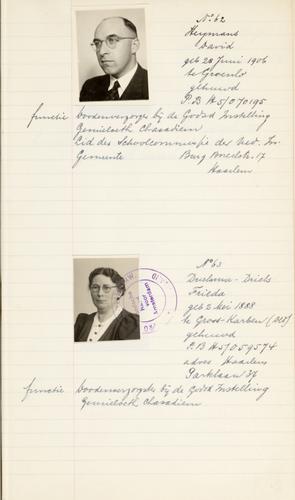 No 62
Heymans
David
geb 28 Juni 1906
te Groenlo
gehuwd
P.B H5/070195
functie Doodenverzorger bij de Godsd Instelling
Gemieloth Chasadiem
Lid des Schoolcommissie des Ned. Isr.
Gemeente Burg
Haarlem
No 63
Driels
Frieda
geb 2 Mei 1888
te Groot-Karben
gehuwd
P.B H5/059574
adres Haarlem
Parklaan 37
functie Doodenverzorgster bij de Godsd Instelling
Gemieloth Chasadiem